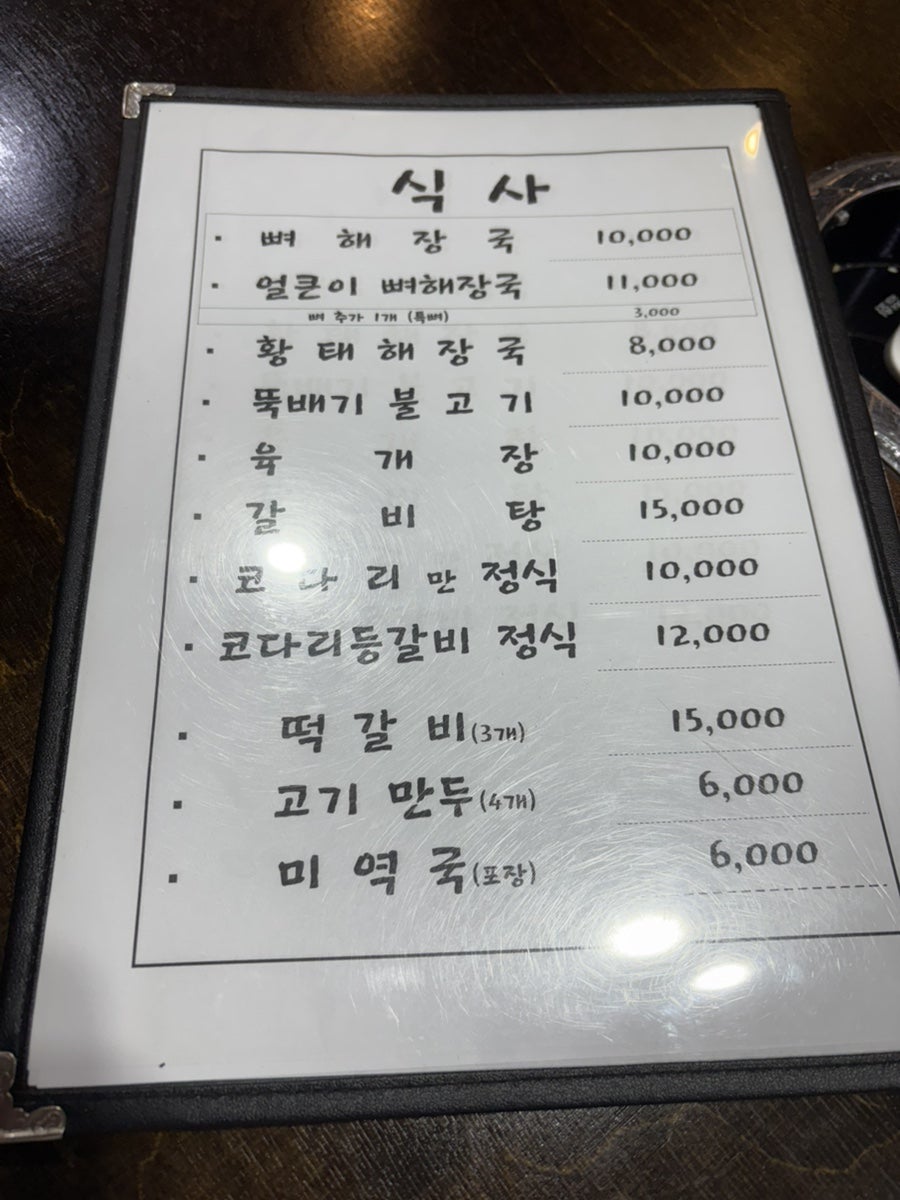 식 사
· 뼈 해 장 국 10,000
· 얼큰이 뼈해장국 11,000
뼈 추가 1개 (특뼈) 3,000
· 황 태 해 장 국 8,000
· 뚝배기 불 고 기 10,000
· 육 개 장 10,000
· 갈 비 탕 15,000
· 코 다 리 만 정식 10,000
· 코다리등갈비 정식 12,000
· 떡 갈 비(3개) 15,000
· 고기 만두(4개) 6,000
· 미 역 국(포장) 6,000